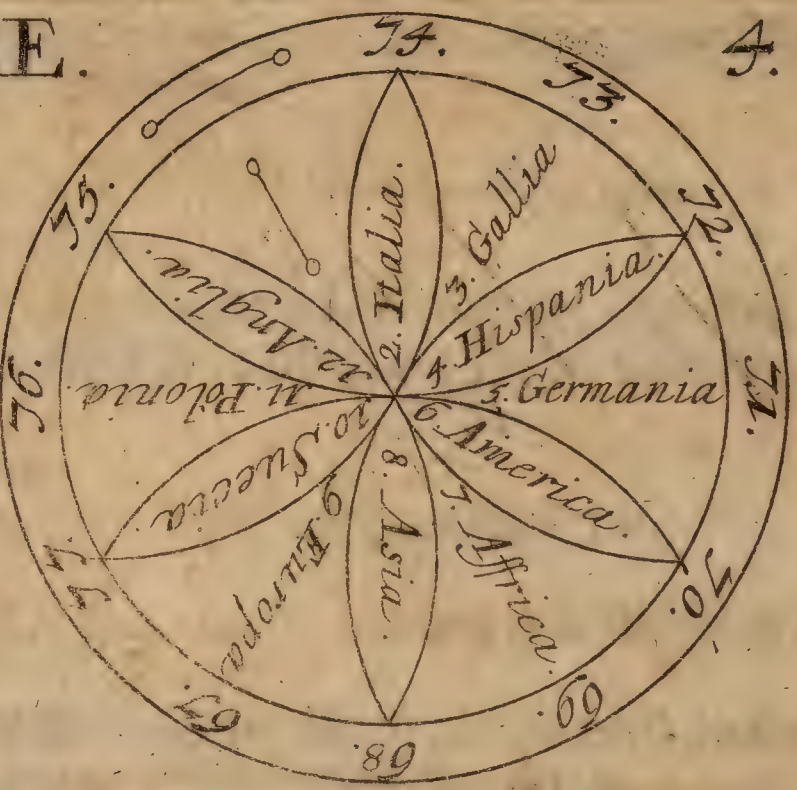 E.
4.
74.
73.
72.
71.
70.
69.
68.
67.
77.
76.
75.
2. Italia.
3. Gallia
4. Hispania.
5. Germania
6. America.
7. Affrica.
8. Asia.
9. Europa.
10. Suecia.
11. Polonia.
12. Anglia.